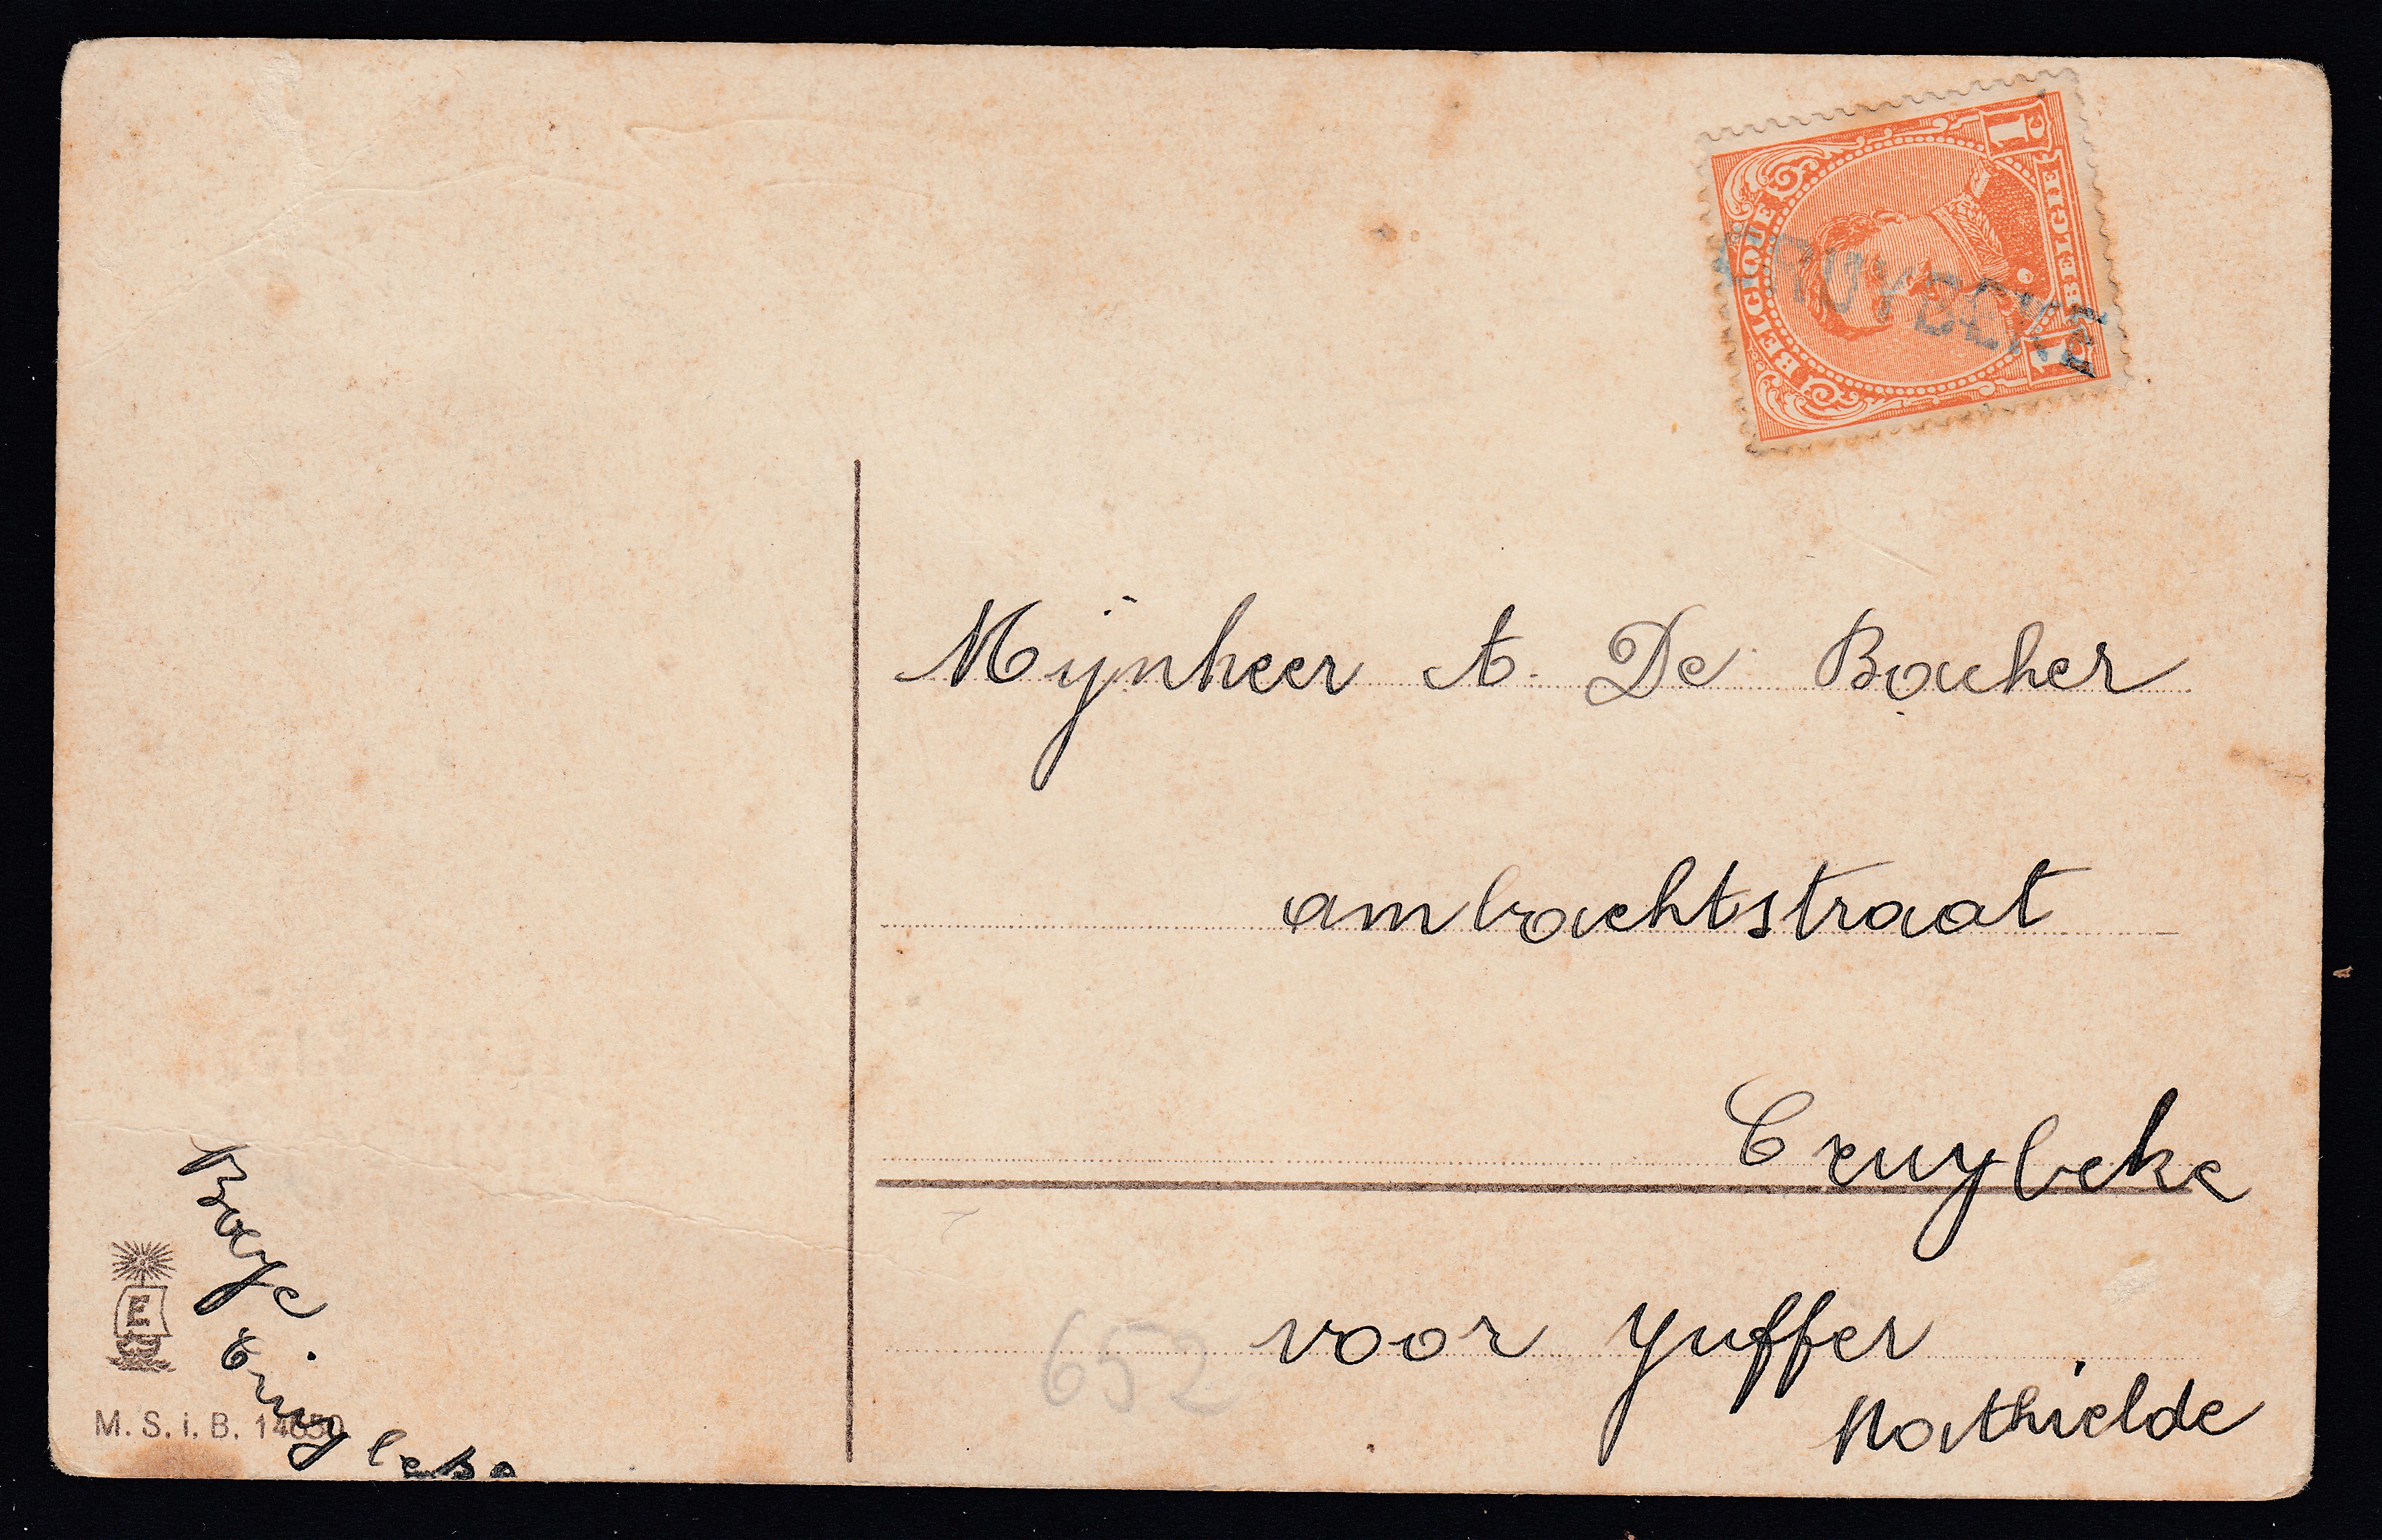 1 c
BELGIQUE
BELGIË
1 c
CRUYBEKE
Mijnheer A. De Backer
ambachtstraat
Cruybeke
voor yuffer
Mathielde
652
Boeye
Cruybeke
E
M. S. i. B. 14650